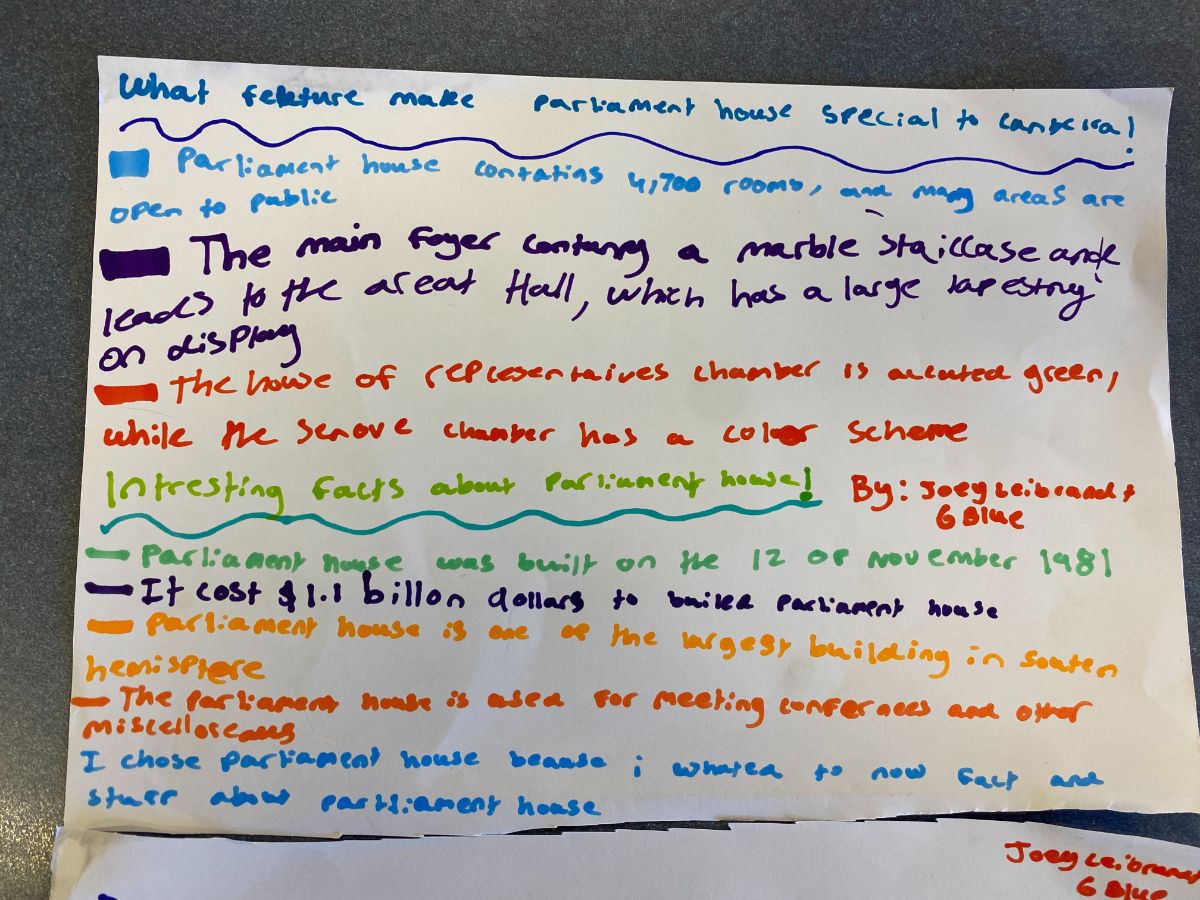 What feature make parliament house special to canbeira!
Parliament house contatins 4,700 rooms, and many areas are
open to public
The main foyer containg a marble staiccase and
leads to the areat Hall, which has a large tapestry
on display
The house of representaives chamber is green,
while the chamber has a color scheme
Intresting facts about Parliament house!
By: Joey Leibrandt
6 Blue
Parliament house was built on the 12 of november 1981
It cost $1.1 billon dollars to builed parliament house
Parliament house is one of the largest building in souten
hemisphere
The parliament house is used for meeting confernces and other
I chose parliament house beause i whated to now fact and
stuff about parliament house
Joey Leibrandt
6 Blue